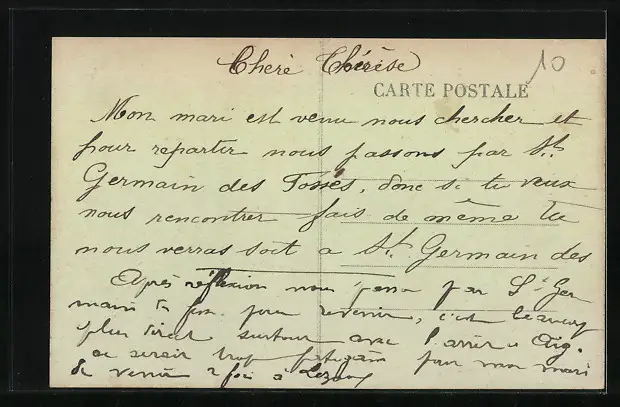 Cherè Thérèse
10
CARTE POSTALE
Mon mari est venu nous chercher et
pour repartir nous passons par St
Germain des Fossés, donc si tu veux
nous rencontrer fais de même tu
nous verras soit a St Germain des
Après réflexion nous passons par St Ger
main pour revenir, c'est beaucoup
plus direct surtout avec l'arret a Aig.
ce serait trop fatigant pour mon mari
de venir 2 fois à